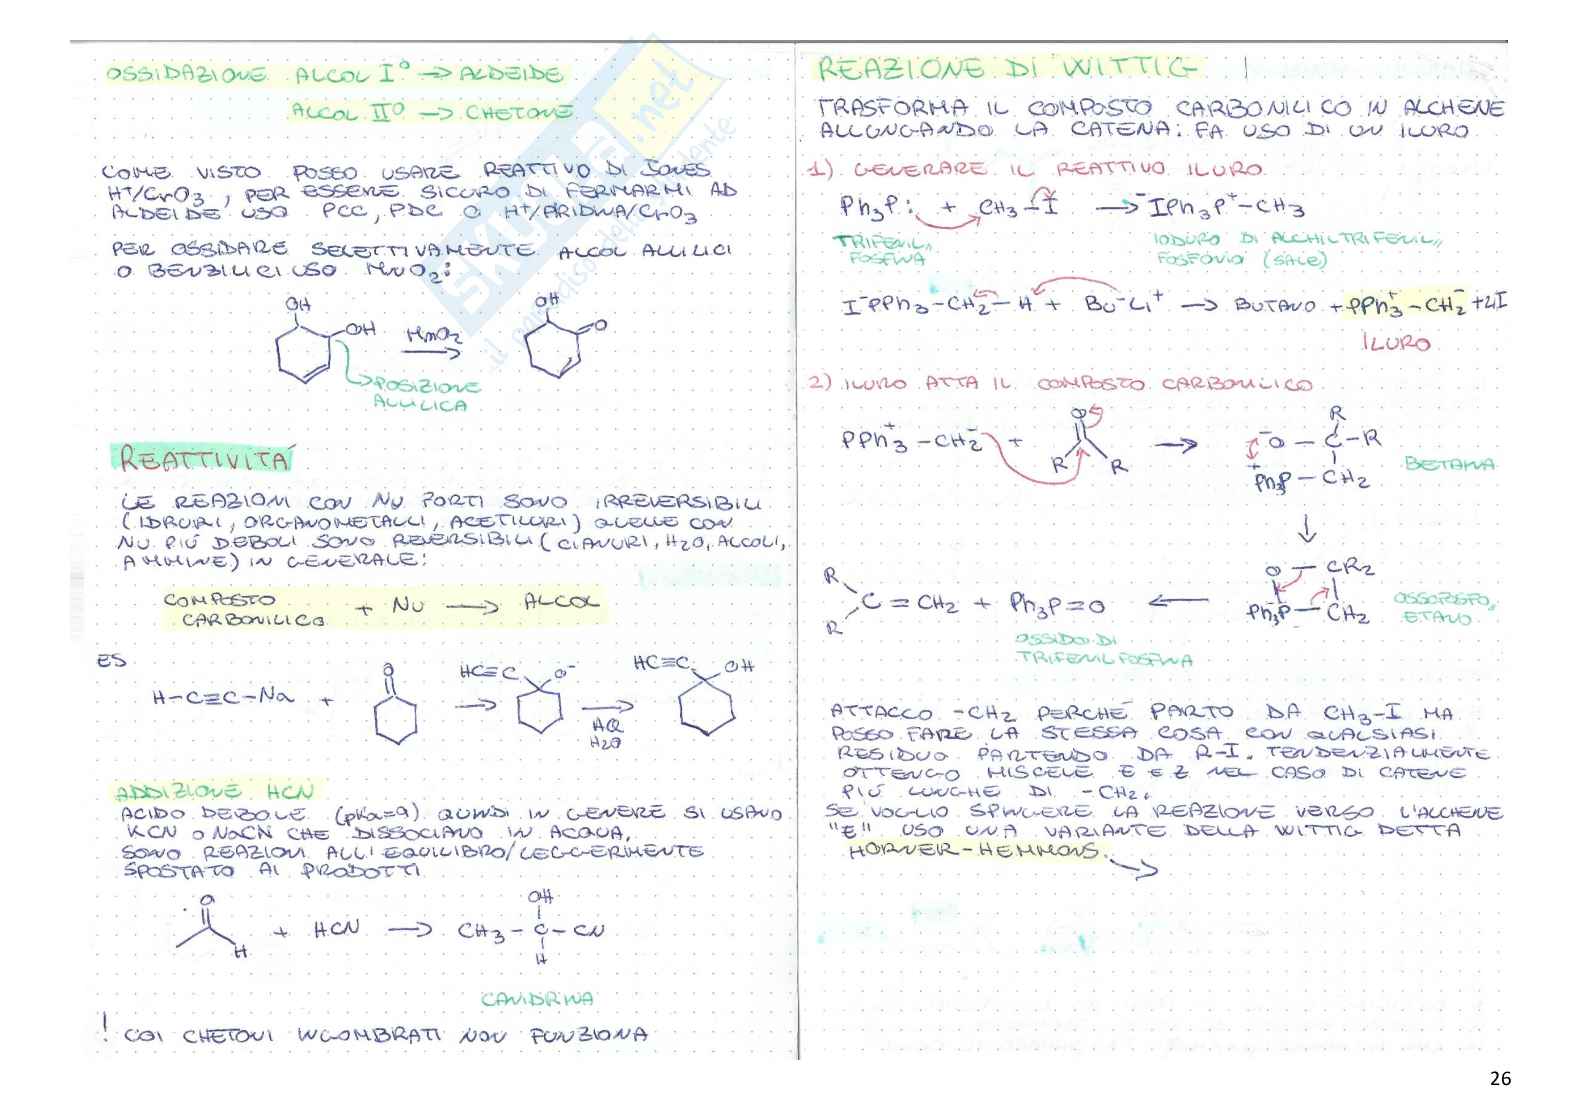 OSSIDAZIONE ALCOL I° → ALDEIDE
ALCOL II° → CHETONE
COME VISTO POSSO USARE REATTIVO DI JONES
H+/CrO3, PER ESSERE SICURO DI FERMARMI AD
ALDEIDE USO PCC, PDC O H+/PIRIDINA/CrO3
PER OSSIDARE SELETTIVAMENTE ALCOL ALLILICI
O BENZILICI USO MnO2:
OH
OH
MnO2
OH
O
POSIZIONE
ALLILICA
REATTIVITÁ
LE REAZIONI CON NU FORTI SONO IRREVERSIBILI
(IDRURI, ORGANOMETALLI, ACETILURI) QUELLE CON
NU PIÚ DEBOLI SONO REVERSIBILI (CIANURI, H2O, ALCOLI,
AMMINE) IN GENERALE:
COMPOSTO
CARBONILICO + NU → ALCOL
ES
H-C≡C-Na + O → HC≡C O- → HC≡C OH
AQ
H2O
ADDIZIONE HCN
ACIDO DEBOLE (pKa=9) QUINDI IN GENERE SI USANO
KCN O NaCN CHE DISSOCIANO IN ACQUA,
SONO REAZIONI ALL'EQUILIBRO/LEGGERMENTE
SPOSTATO AI PRODOTTI
O
H
+ HCN → CH3-C-CN
OH
H
CIANIDRINA
! COI CHETONI INGOMBRATI NON FUNZIONA
REAZIONE DI WITTIG !
TRASFORMA IL COMPOSTO CARBONILICO IN ALCHENE
ALLUNGANDO LA CATENA: FA USO DI UN ILURO
1) GENERARE IL REATTIVO ILURO
Ph3P: + CH3-I → IPh3P+-CH3
TRIFENIL,,
FOSFINA
IODURO DI ALCHILTRIFENIL,,
FOSFONIO (SALE)
I-PPh3-CH2-H + Bu-Li+ → BUTANO + PPh3+-CH2- + LiI
ILURO
2) ILURO ATTA IL COMPOSTO CARBONILICO
PPh3+-CH2- + O
R R
→
R
-O-C-R
+Ph3P-CH2
BETAINA
↓
O-CR2
Ph3P-CH2
OSSOFOSFO,,
ETANO
R
C=CH2 + Ph3P=O ←
R
OSSIDO DI
TRIFENIL FOSFINA
ATTACCO -CH2 PERCHÉ PARTO DA CH3-I MA
POSSO FARE LA STESSA COSA CON QUALSIASI
RESIDUO PARTENDO DA R-I. TENDENZIALMENTE
OTTENGO MISCELE E E Z NEL CASO DI CATENE
PIÚ LUNGHE DI -CH2.
SE VOGLIO SPINGERE LA REAZIONE VERSO L'ALCHENE
"E" USO UNA VARIANTE DELLA WITTIG DETTA
HORNER-HEMMONS. →
skuola.net
26